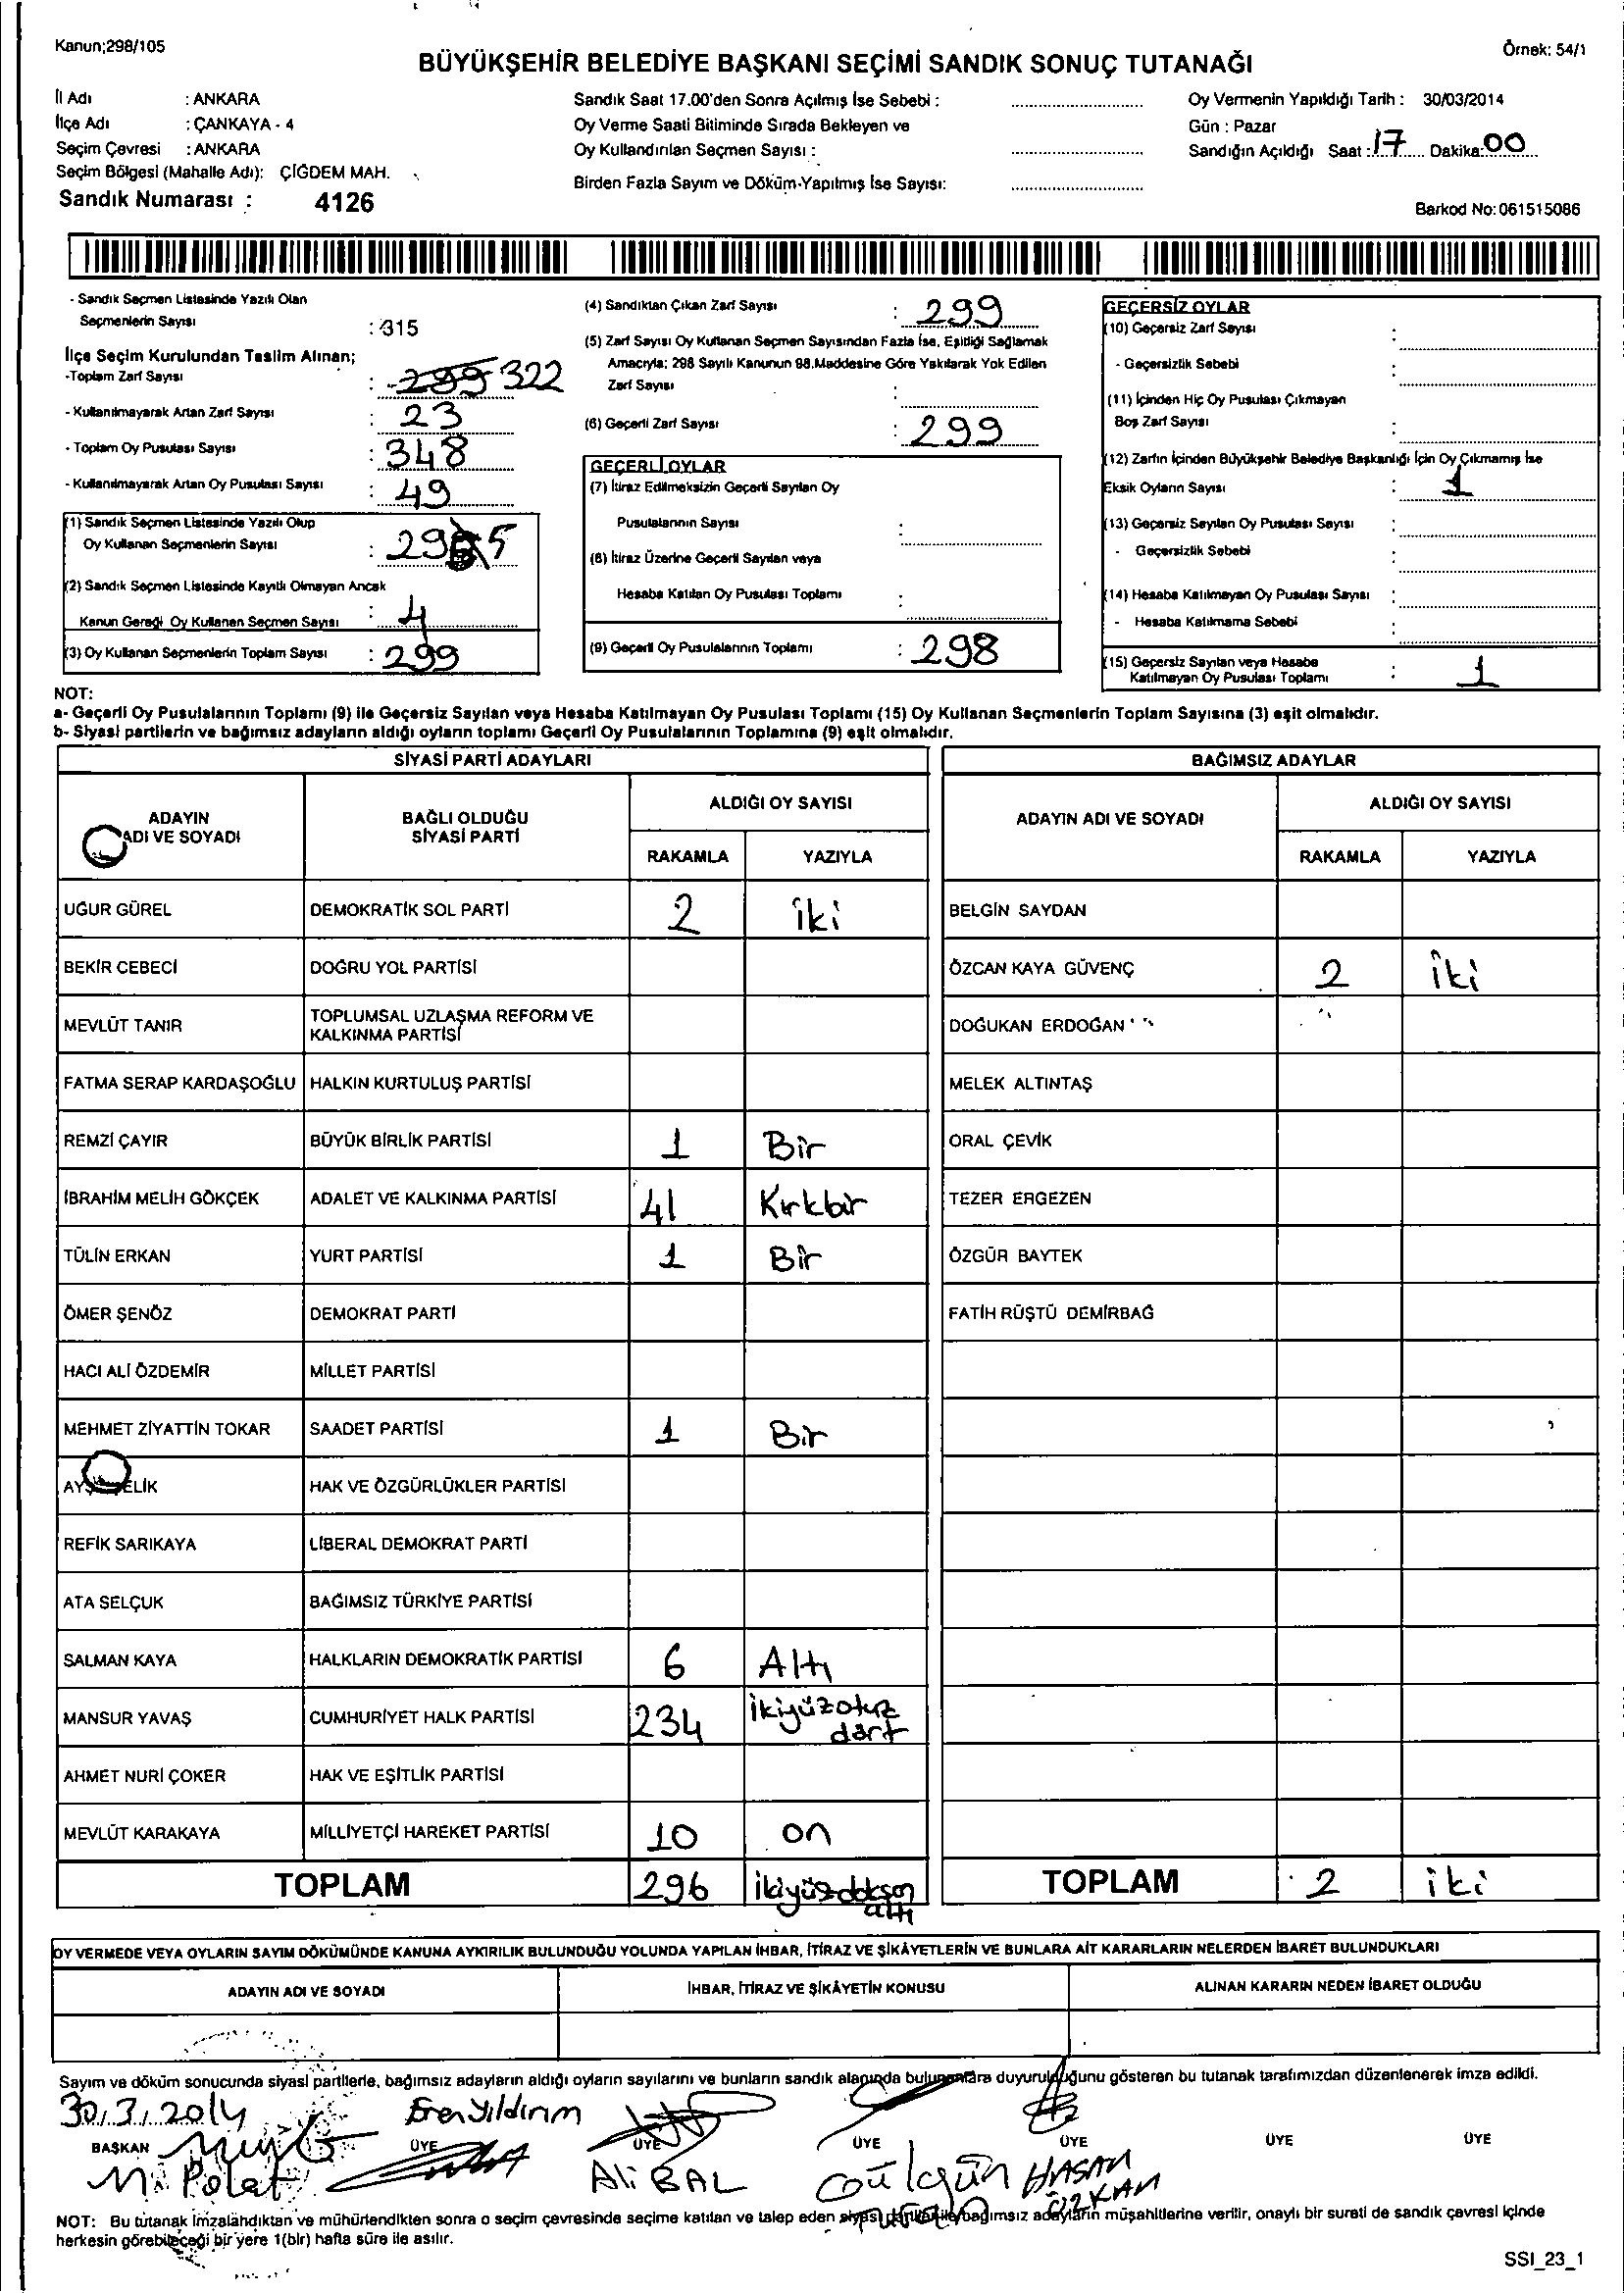 Kanun;298/105
Örnek: 54/1
BÜYÜKŞEHİR BELEDİYE BAŞKANI SEÇİMİ SANDIK SONUÇ TUTANAĞI
İl Adı : ANKARA
İlçe Adı : ÇANKAYA - 4
Seçim Çevresi : ANKARA
Seçim Bölgesi (Mahalle Adı): ÇİĞDEM MAH.
Sandık Numarası : 4126
Sandık Saat 17.00'den Sonra Açılmış İse Sebebi :
Oy Verme Saati Bitiminde Sırada Bekleyen ve
Oy Kullandırılan Seçmen Sayısı :
Birden Fazla Sayım ve Döküm Yapılmış İse Sayısı:
Oy Vermenin Yapıldığı Tarih : 30/03/2014
Gün : Pazar
Sandığın Açıldığı Saat : 17 Dakika: 00
Barkod No: 061515086
- Sandık Seçmen Listesinde Yazılı Olan
Seçmenlerin Sayısı : 315
İlçe Seçim Kurulundan Teslim Alınan;
-Toplam Zarf Sayısı : 299 322
- Kullanılmayarak Artan Zarf Sayısı : 23
- Toplam Oy Pusulası Sayısı : 348
- Kullanılmayarak Artan Oy Pusulası Sayısı : 49
(1) Sandık Seçmen Listesinde Yazılı Olup
Oy Kullanan Seçmenlerin Sayısı : 295
(2) Sandık Seçmen Listesinde Kayıtlı Olmayan Ancak
Kanun Gereği Oy Kullanan Seçmen Sayısı : 4
(3) Oy Kullanan Seçmenlerin Toplam Sayısı : 299
(4) Sandıktan Çıkan Zarf Sayısı : 299
(5) Zarf Sayısı Oy Kullanan Seçmen Sayısından Fazla İse, Eşitliği Sağlamak
Amacıyla; 298 Sayılı Kanunun 98.Maddesine Göre Yakılarak Yok Edilen
Zarf Sayısı :
(6) Geçerli Zarf Sayısı : 299
GEÇERLİ OYLAR
(7) İtiraz Edilmeksizin Geçerli Sayılan Oy
Pusulalarının Sayısı :
(8) İtiraz Üzerine Geçerli Sayılan veya
Hesaba Katılan Oy Pusulası Toplamı :
(9) Geçerli Oy Pusulalarının Toplamı : 298
GEÇERSİZ OYLAR
(10) Geçersiz Zarf Sayısı :
- Geçersizlik Sebebi :
(11) İçinden Hiç Oy Pusulası Çıkmayan
Boş Zarf Sayısı :
(12) Zarfın İçinden Büyükşehir Belediye Başkanlığı İçin Oy Çıkmamış İse
Eksik Oyların Sayısı : 1
(13) Geçersiz Sayılan Oy Pusulası Sayısı :
- Geçersizlik Sebebi :
(14) Hesaba Katılmayan Oy Pusulası Sayısı :
- Hesaba Katılmama Sebebi :
(15) Geçersiz Sayılan veya Hesaba
Katılmayan Oy Pusulası Toplamı : 1
NOT:
a- Geçerli Oy Pusulalarının Toplamı (9) ile Geçersiz Sayılan veya Hesaba Katılmayan Oy Pusulası Toplamı (15) Oy Kullanan Seçmenlerin Toplam Sayısına (3) eşit olmalıdır.
b- Siyasi partilerin ve bağımsız adayların aldığı oyların toplamı Geçerli Oy Pusulalarının Toplamına (9) eşit olmalıdır.
SİYASİ PARTİ ADAYLARI
ADAYIN ADI VE SOYADI
BAĞLI OLDUĞU SİYASİ PARTİ
ALDIĞI OY SAYISI
RAKAMLA YAZIYLA
UĞUR GÜREL DEMOKRATİK SOL PARTİ 2 iki
BEKİR CEBECİ DOĞRU YOL PARTİSİ
MEVLÜT TANIR TOPLUMSAL UZLAŞMA REFORM VE KALKINMA PARTİSİ
FATMA SERAP KARDAŞOĞLU HALKIN KURTULUŞ PARTİSİ
REMZİ ÇAYIR BÜYÜK BİRLİK PARTİSİ 1 Bir
İBRAHİM MELİH GÖKÇEK ADALET VE KALKINMA PARTİSİ 41 Kırkbir
TÜLİN ERKAN YURT PARTİSİ 1 Bir
ÖMER ŞENÖZ DEMOKRAT PARTİ
HACI ALİ ÖZDEMİR MİLLET PARTİSİ
MEHMET ZİYATTİN TOKAR SAADET PARTİSİ 1 Bir
HAK VE ÖZGÜRLÜKLER PARTİSİ
REFİK SARIKAYA LİBERAL DEMOKRAT PARTİ
ATA SELÇUK BAĞIMSIZ TÜRKİYE PARTİSİ
SALMAN KAYA HALKLARIN DEMOKRATİK PARTİSİ 6 Altı
MANSUR YAVAŞ CUMHURİYET HALK PARTİSİ 234 ikiyüzotuz dört
AHMET NURİ ÇOKER HAK VE EŞİTLİK PARTİSİ
MEVLÜT KARAKAYA MİLLİYETÇİ HAREKET PARTİSİ 10 on
TOPLAM 296 ikiyüzdoksan altı
BAĞIMSIZ ADAYLAR
ADAYIN ADI VE SOYADI
ALDIĞI OY SAYISI
RAKAMLA YAZIYLA
BELGİN SAYDAN
ÖZCAN KAYA GÜVENÇ 2 iki
DOĞUKAN ERDOĞAN
MELEK ALTINTAŞ
ORAL ÇEVİK
TEZER ERGEZEN
ÖZGÜR BAYTEK
FATİH RÜŞTÜ DEMİRBAĞ
TOPLAM 2 iki
OY VERMEDE VEYA OYLARIN SAYIM DÖKÜMÜNDE KANUNA AYKIRILIK BULUNDUĞU YOLUNDA YAPILAN İHBAR, İTİRAZ VE ŞİKÂYETLERİN VE BUNLARA AİT KARARLARIN NELERDEN İBARET BULUNDUKLARI
ADAYIN ADI VE SOYADI İHBAR, İTİRAZ VE ŞİKÂYETİN KONUSU ALINAN KARARIN NEDEN İBARET OLDUĞU
Sayım ve döküm sonucunda siyasi partilerle, bağımsız adayların aldığı oyların sayılarını ve bunların sandık alanında bulunanlara duyurulduğunu gösteren bu tutanak tarafımızdan düzenlenerek imza edildi.
30/3/2014 Eren Yıldırım
BAŞKAN ÜYE ÜYE ÜYE ÜYE ÜYE ÜYE
M. Polat Ali BAL HASAN ÖZKAN
NOT: Bu tutanak imzalandıktan ve mühürlendikten sonra o seçim çevresinde seçime katılan ve talep eden siyasi partiler ile bağımsız adayların müşahitlerine verilir, onaylı bir sureti de sandık çevresi içinde
herkesin görebileceği bir yere 1(bir) hafta süre ile asılır.
SSI_23_1